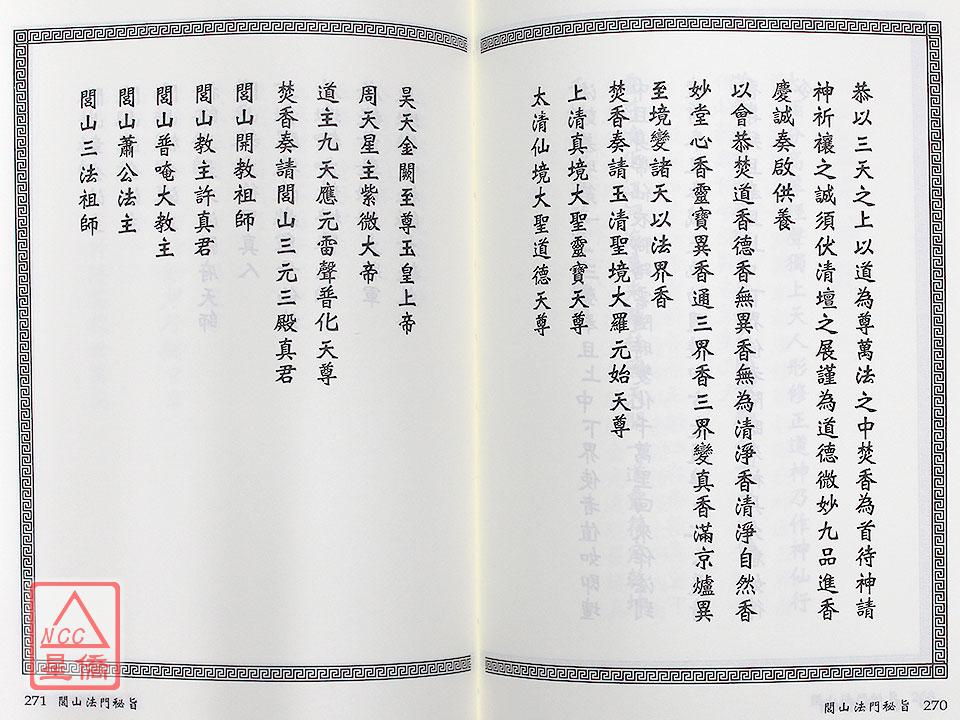 恭以三天之上以道為尊萬法之中焚香為首待神請
神祈禳之誠須伏清壇之展謹為道德微妙九品進香
慶誠奏啟供養
以會恭焚道香德香無異香無為清淨香清淨自然香
妙堂心香靈寶異香通三界香三界變真香滿京爐異
至境變諸天以法界香
焚香奏請玉清聖境大羅元始天尊
上清真境大聖靈寶天尊
太清仙境大聖道德天尊
閭山法門秘旨 270
昊天金闕至尊玉皇上帝
周天星主紫微大帝
道主九天應元雷聲普化天尊
焚香奏請閭山三元三殿真君
閭山開教祖師
閭山教主許真君
閭山普唵大教主
閭山蕭公法主
閭山三法祖師
271 閭山法門秘旨
NCC
量僑